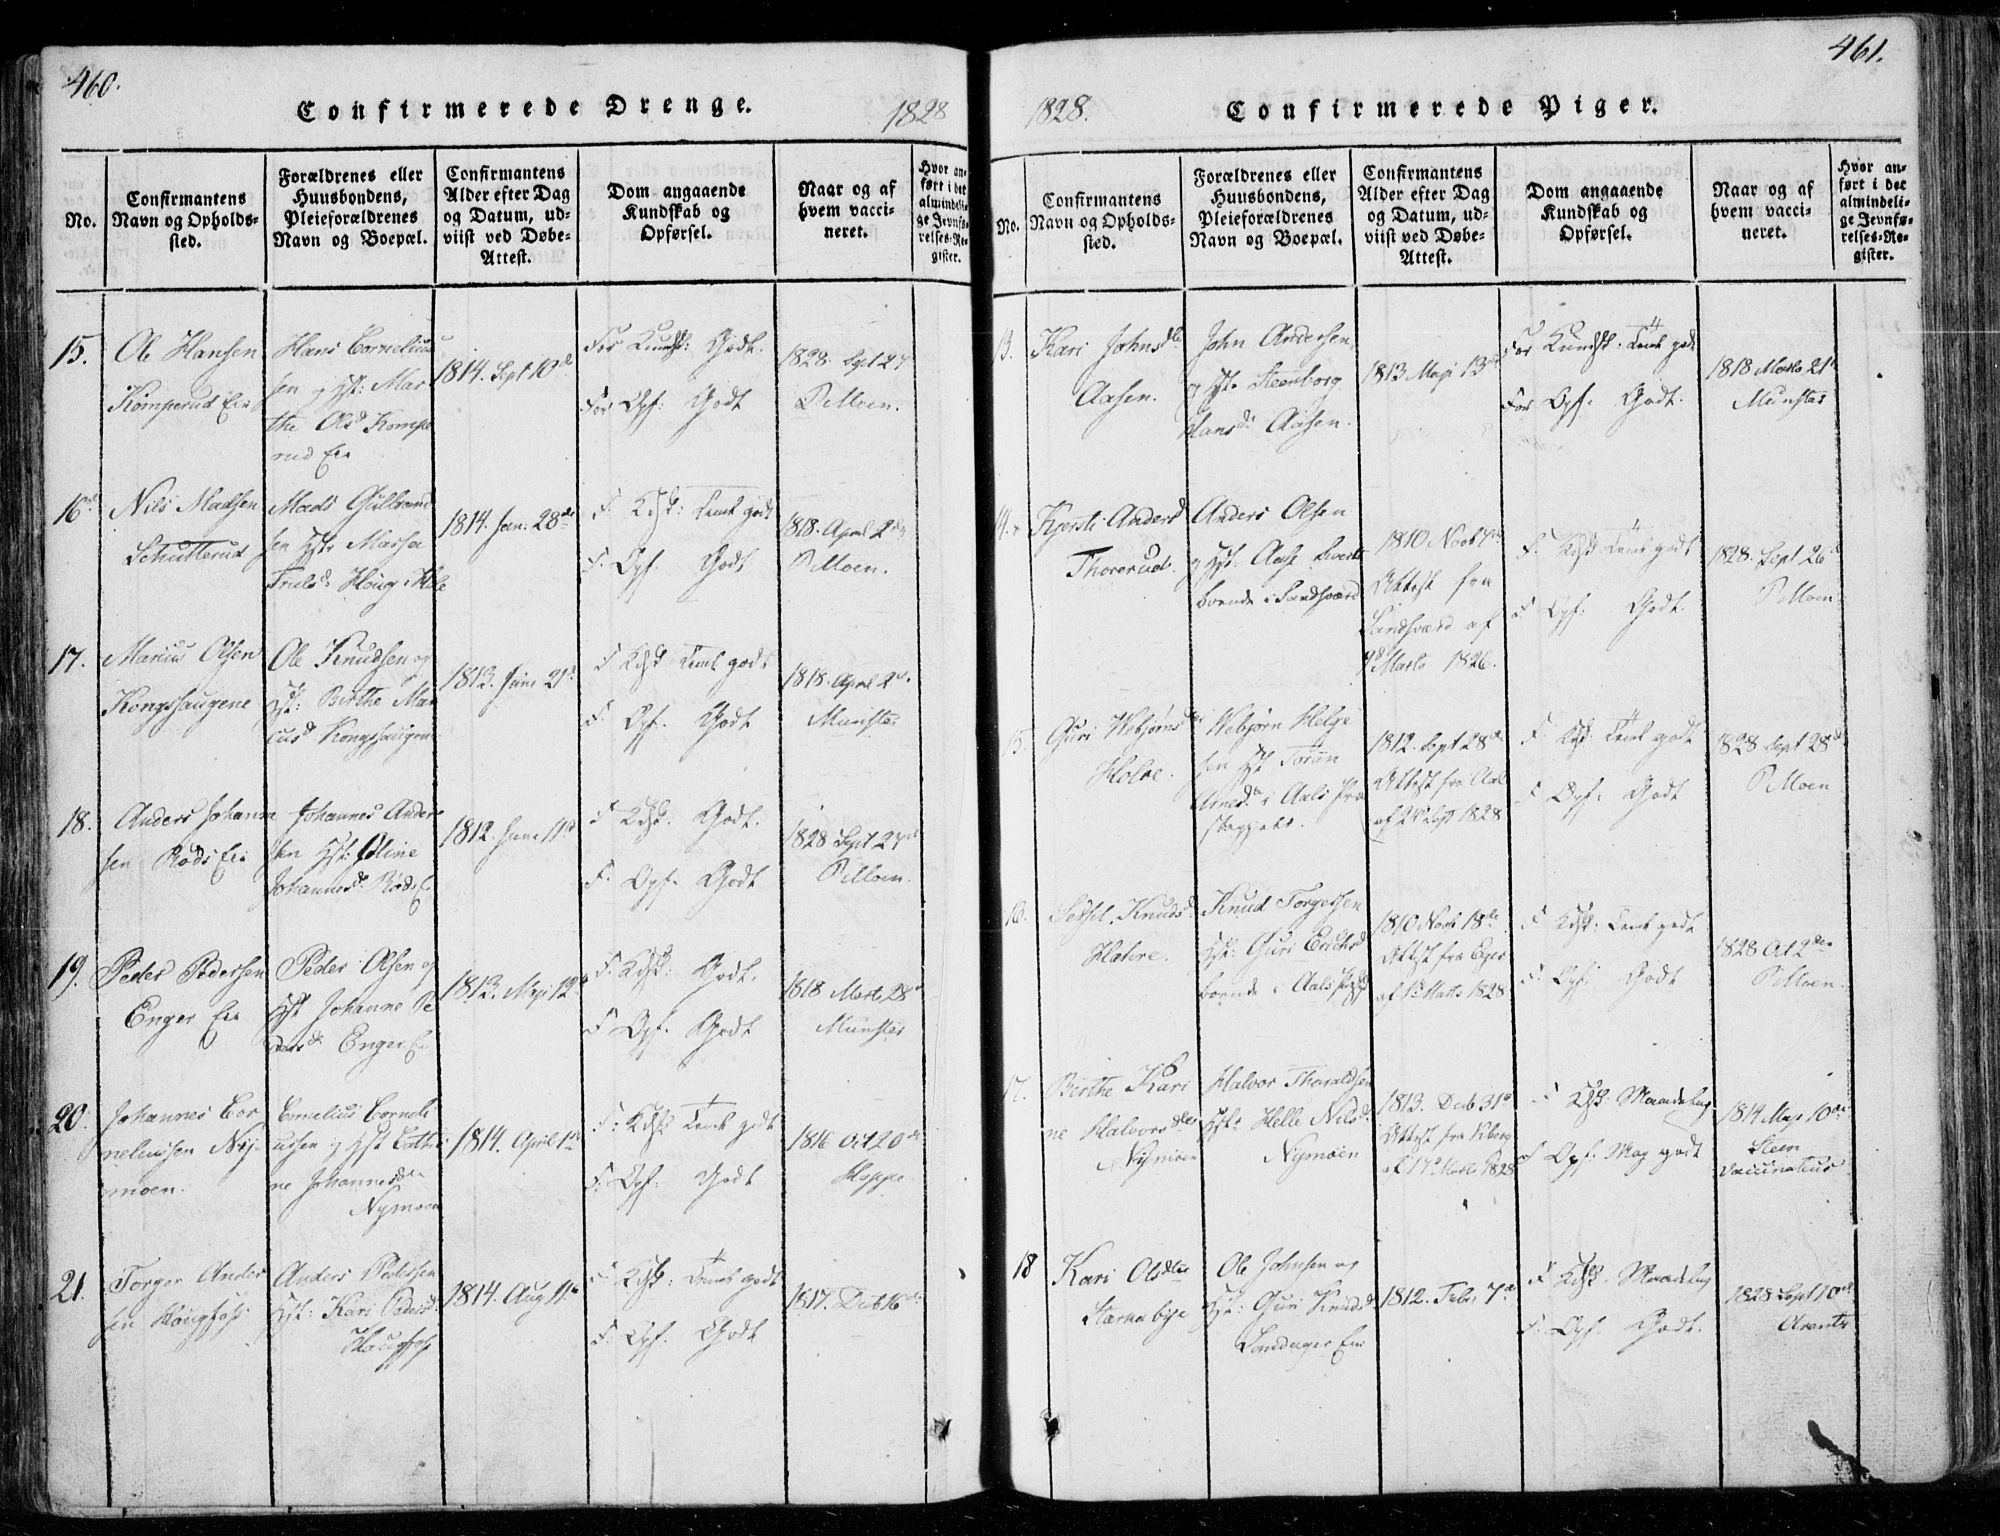 460.
Confirmerede Drenge.
1828
No.
Confirmantens
Navn og Opholds-
sted.
Forældrenes eller
Huusbondens,
Pleieforældrenes
Navn og Boepæl.
Confirmantens
Alder efter Dag
og Datum, ud-
viist ved Døbe-
Attest.
Dom angaaende
Kundskab og
Opførsel.
Naar og af
hvem vacci-
neret.
Hvor an-
ført i det
almindeli-
ge Jevnfø-
relses-Re-
gister.
15.
Ole Hansen
Komperud Eie
Hans Cornelius
sen og Hst: Mar
the Olsd Kompe
rud Eie
1814. Sept 10de
For Kundsk: Godt.
For Opf: Godt
1828. Sept 27
P Moen.
16
Nils Madsen
Schutterud
Mads Gulbrand
sen Hst.
Trulsd. Houg
1814. Jan: 28de
F. Kdsk: Teml godt
F. Opf. Godt
1818. April 2de
P Moen.
17.
Marius Olsen
Kongshaugene
Ole Knudsen og
Hst: Birthe Mar
cusd Kongshaugene
1813. Juni 21d
F Kdsk: Teml godt
F. Opf. Godt
1818. April 2d.
Munster
18.
Anders Johanne
sen Røds Eie
Johannes Ander
sen Hst: Oline
Johannesd. Røds E
1812. Juni 11d
F Kdsk: Godt.
F. Opf. Godt
1828 Sept 27de
P Moen.
19.
Peder Pedersen
Enger Eie
Peder Olsen og
Hst Johanne Pe
dersd. Enger E
1813. Maji 12d
F. Kdsk: Godt.
F Opf. Godt
1818 Marts 28
Munster
20.
Johannes Cor
neliussen Ny-
moen.
Cornelius Corneli
ussen og Hst Cathri
ne Johannesdtr
Nymoen
1814. April 1ste
F: Kdsk Teml godt
F: Opf: Godt
1816 Oct 20de
Hoppe
21.
Torger Ander
sen Hougfoss
Anders Pedersen
Hst: Kari Pedersd.
Haugfoss
1814. Aug 11te
F: Kdsk: Teml godt
F: Opf: Godt
1817. Decb 16de
461.
1828.
Confirmerede Piger.
No.
Confirmantens
Navn og Opholds-
sted.
Forældrenes eller
Huusbondens,
Pleieforældrenes
Navn og Boepæl.
Confirmantens
Alder efter Dag
og Datum, ud-
viist ved Døbe-
Attest.
Dom angaaende
Kundskab og
Opførsel.
Naar og af
hvem vacci-
neret.
Hvor an-
ført i det
almindeli-
ge Jevnfø-
relses-Re-
gister.
13.
Kari Johnsdtr
Aasen.
John Andersen
og Hst. Steenborg
Hansd. Aasen.
1813 Maji 13de
For Kundsk. Teml godt
For Opf. Godt.
1818 Marts 21
Munster
14.
Kjersti Andersd
Thorerud.
Anders Olsen
og Hst. Aase
boende i Sandsværd
1810 Novb
Attest fra
Sandsværd af
9de Marts 1826.
F. Kdsk Teml godt
F Opf: Godt.
1828. Sept 26
P Moen
15.
Guri Webjørnsdtr
Holve.
Webjørn Helge
sen Hst Torøn
Arnesd. i Aals Præ
stegjeld.
1812. Sept 28de
Attest fra Aal
af 24 Sept 1828
F. Kdsk: Teml godt
F Opf: Godt
1828 Sept 28d
P Moen
16.
Sidsel Knudsd.
Knud Torgersen
Hst: Guri Erichsd
boende i Aals
1810 Novb 18de
Attest fra Eger
af 1ste Marts 1828
F Kdsk: Teml godt
F. Opf: Godt
1828 Oct 2den
P Moen.
17.
Birthe Kari
ne Halvorsdtr
Nymoen
Halvor Tharaldsen
Hst: Helle Nilsd.
Nymoen
1813. Decb 31te
Attest fra
af 17 Marts 1828
F Kdsk. Maadelig
F Opf: Meg godt
1814 Maji 10de
Steen
Vaccinateur
18
Kari Olsdtr
Ole Johnsen og
Hst: Guri Knudsd
Eie
1812. Febr 7de
F Kdsk. Maadelig
F. Opf: Godt.
1828 Sept 10de
Arentz